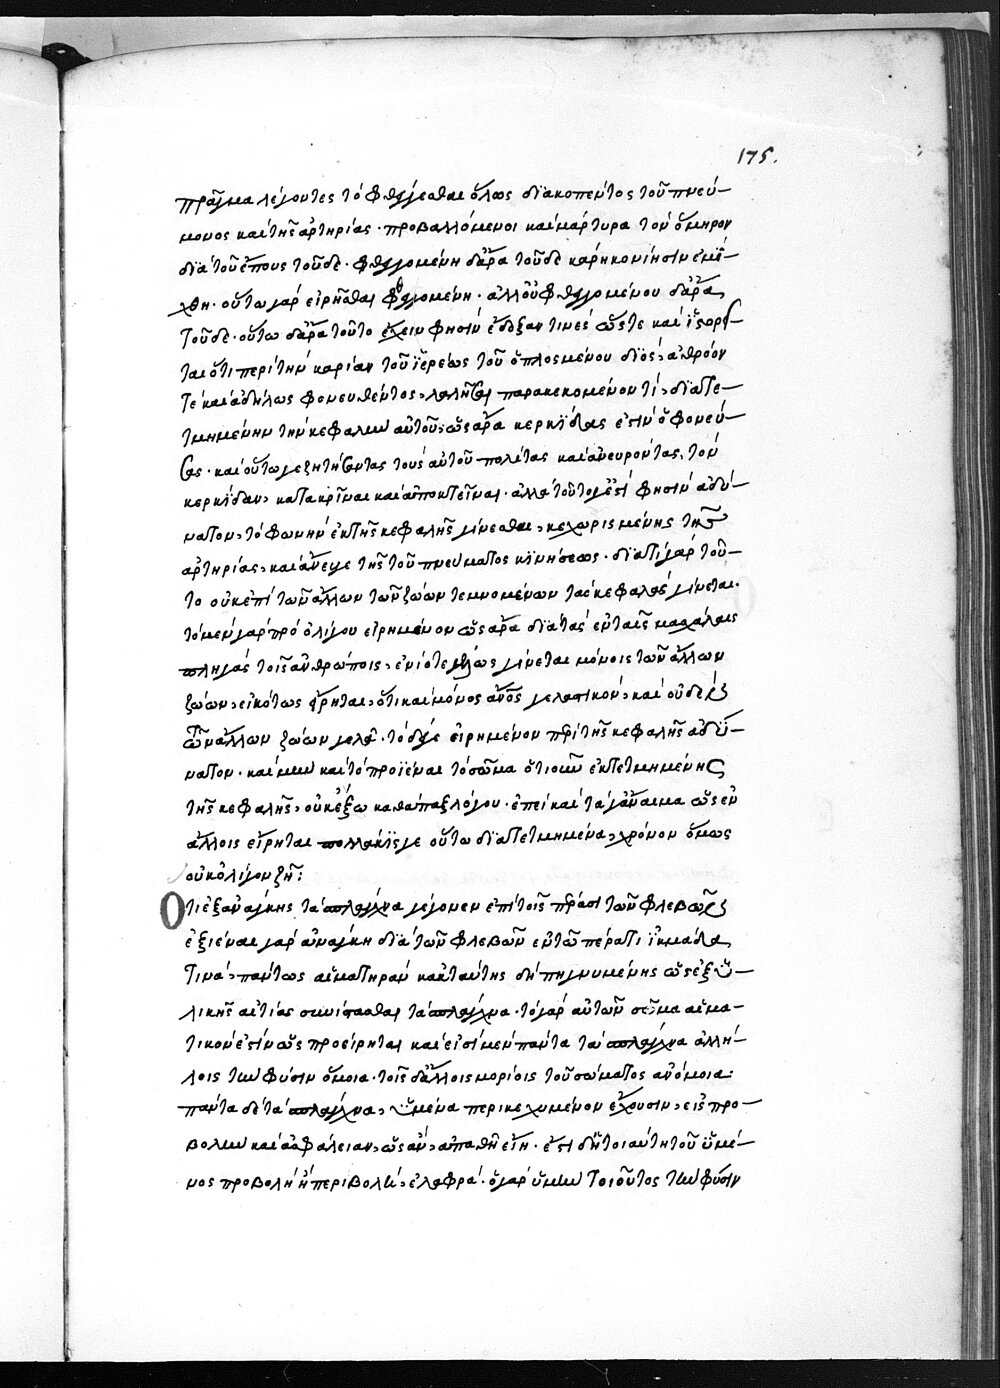 175.
πρᾶγμα λέγοντες τὸ φθέγγεσθαι ὅλως διακοπέντος τοῦ πνεύ-
μονος καὶ τῆς ἀρτηρίας· προβαλλόμενοι καὶ μάρτυρα τὸν ὅμηρον
διὰ τοῦ ἔπους τοῦδε· φθεγγομένη δἄρα τοῦδε κάρη κονίησιν ἐμί-
χθη· οὕτω γὰρ εἰρῆσθαι φθεγγομένη· ἀλλ' οὐ φθεγγομένου δἄρα
τοῦδε· οὕτω δἄρα τοῦτο ἔχειν φησὶν ἔδοξαν τινές ὥστε καὶ ἱστορεῖ-
ται ὅτι περὶ τὴν καρίαν τοῦ ἱερέως τοῦ ὁπλοσμένου διός, ἀθρόον
τε καὶ ἀδήλως φονευθέντος, λαλῆσαι παρακεκομένον τί, διατε-
τμημένην τὴν κεφαλὴν αὐτοῦ, ὡς ἄρα κερκίδας ἐστὶν ὁ φονεύ-
σας· καὶ οὕτω γε ζητήσαντας τοὺς αὐτοῦ πολίτας καὶ ἀνευρόντας, τὸν
κερκίδαν, κατακρῖναι καὶ ἀποκτεῖναι· ἀλλὰ τοῦτο γέ ἐστί φησιν ἀδύ-
νατον, τὸ φωνὴν ἐκ τῆς κεφαλῆς γίνεσθαι, κεχωρισμένης τῆς
ἀρτηρίας, καὶ ἄνευγε τῆς τοῦ πνεύματος κινήσεως· διατί γὰρ τοῦ-
το οὐκ ἐπὶ τῶν ἄλλων τῶν ζώων τεμνομένων τὰς κεφαλὰς γίνεται·
τὸ μὲν γὰρ πρὸ ὀλίγου εἰρημένον ὡς ἄρα διὰ τὰς ἐν ταῖς μασχάλαις
πληγὰς τοῖς ἀνθρώποις, ἐνίοτε γέλως γίνεται μόνοις τῶν ἄλλων
ζώων, εἰκότως εἴρηται, ὅτι καὶ μόνος ἄνος γελαστικόν, καὶ οὐδεὶς
τῶν ἄλλων ζώων γελᾶ· τὸ δέγε εἰρημένον περὶ τῆς κεφαλῆς ἀδύ-
νατον· καὶ μὴν καὶ τὸ προϊέναι τὸ σῶμα ὁτιοῦν ἐκτετμημένης
τῆς κεφαλῆς, οὐκ ἔξω καθάπαξ λόγου· ἐπεὶ καὶ τὰ γ' ἄναιμα ὡς ἐν
ἄλλοις εἴρηται πολλάκις γε οὕτω διατετμημένα, χρόνον ὅμως
οὐκ ὀλίγον ζῆ:
Οτι ἐξ ἀνάγκης τὰ σπλάγχνα γέγονεν ἐπὶ τοῖς πέρασι τῶν φλεβῶν
ἐξιέναι γὰρ ἀνάγκη διὰ τῶν φλεβῶν ἐν τῶ πέρατι ἰκμάδα
τινά, πάντως αἱματηρὰν κἀκ ταύτης δὴ πηγνυμένης ὡς ἐξ ὑ-
λικῆς αἰτίας συνίστασθαι τὰ σπλάγχνα· τὸ γὰρ αὐτῶν σῶμα αἱμα-
τικόν ἐστὶν ὡς προείρηται καὶ εἰσὶ μὲν πάντα τὰ σπλάγχνα ἀλλή-
λοις τὴν φύσιν ὅμοια· τοῖς δἄλλοις μορίοις τοῦ σώματος ἀνόμοια·
πάντα δὲ τὰ σπλάγχνα, ὑμένα περικεχυμένον ἔχουσιν, εἰς προ-
βολὴν καὶ ἀσφάλειαν, ὡς ἂν, ἀπαθῆ εἴη· ἔστι δὴ τοιαύτη τοῦ ὑμέ-
νος προβολὴ ἢ περιβολή, ἐλαφρά· ὁ γὰρ ὑμὴν τοιοῦτος τὴν φύσιν